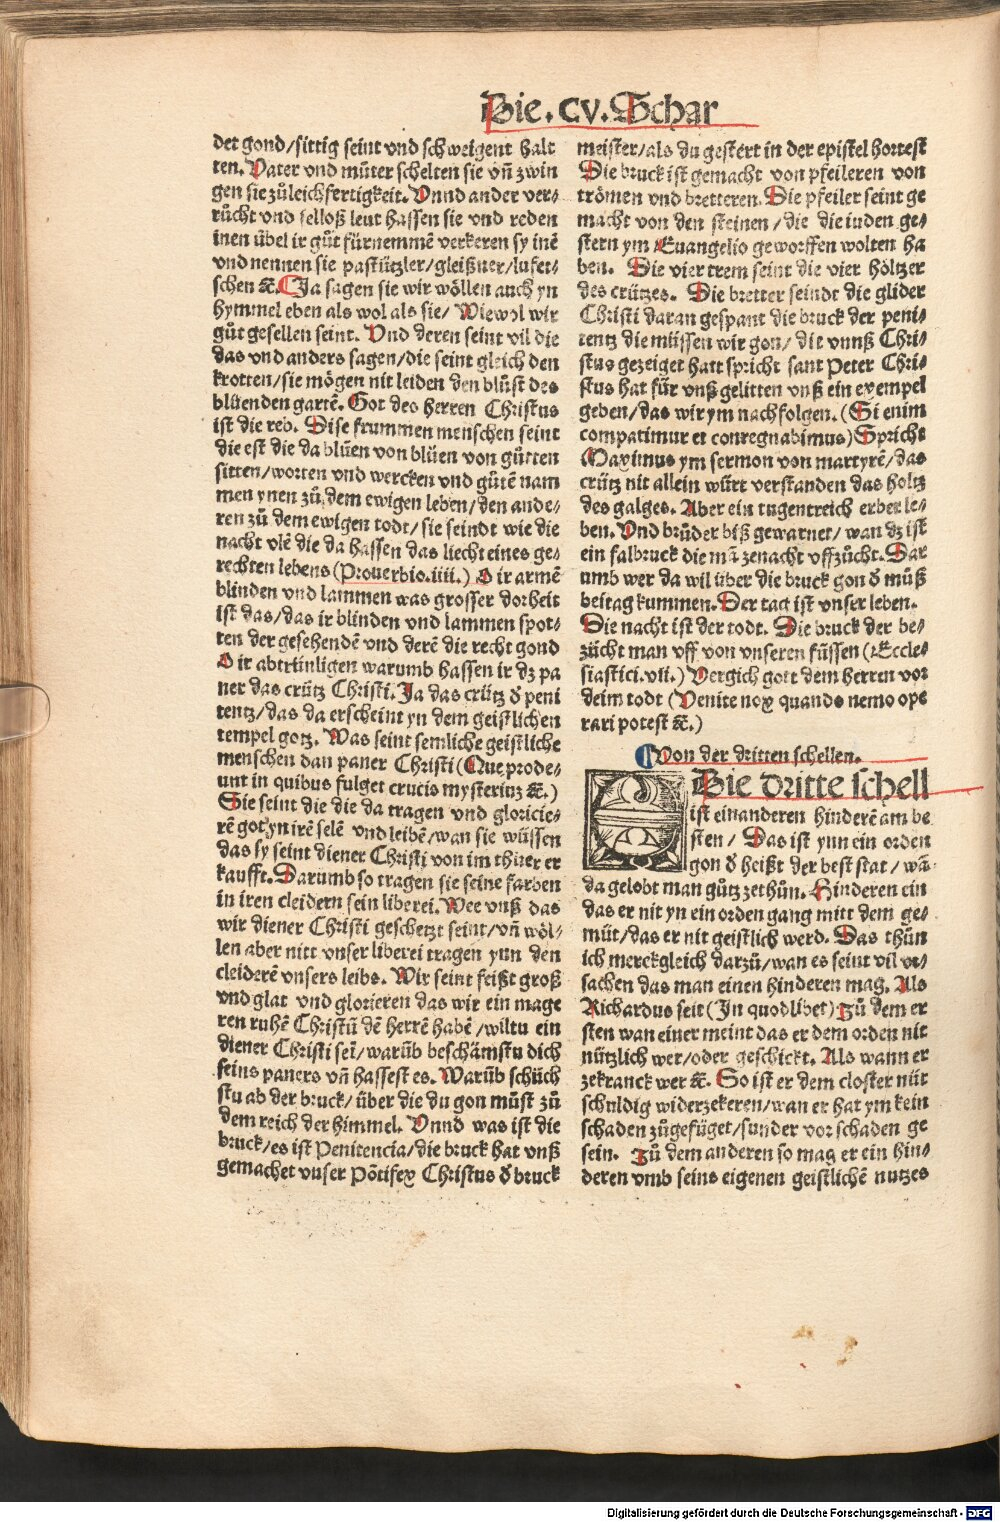 Die.CV.Schar
det gond/sittig seint vnd schweigent halt
ten. Vater vnd můter schelten sie vñ zwin
gen sie zůleichfertigkeit. Vnnd ander ver⸗
růcht vnd selloß leut hassen sie vnd reden
inen übel ir gůt fürnemmē verkeren sy inē
vnd nennen sie pastützler/gleißner/lufer⸗
schen ⁊c. Ja sagen sie wir wöllen auch yn
hymmel eben als wol als sie/ Wiewol wir
gůt gesellen seint. Vnd deren seint vil die
das vnd anders sagen/die seint gleich den
krotten/sie mögen nit leiden den blůst des
blüenden gartē. Got des herren Christus
ist die reb. Dise frummen menschen seint
die est die da blüen von blüen von gůtten
sitten/worten vnd wercken vnd gůtē nam
men ynen zů dem ewigen leben/den ande⸗
ren zů dem ewigen todt/sie seindt wie die
nacht vlē die da hassen das liecht eines ge⸗
rechten lebens (Prouerbio.iiii.) O ir armē
blinden vnd lammen was grosser dorheit
ist das/das ir blinden vnd lammen spot⸗
ten der gesehendē vnd derē die recht gond
O ir abtrünligen warumb hassen ir dz pa
ner das crütz Christi. Ja das crütz ð peni
tentz/das da erscheint yn dem geistlichen
tempel gotz. Was seint semliche geistliche
menschen dan paner Christi (Que prode⸗
unt in quibus fulget crucis mysteriuʒ ⁊c.)
Sie seint die die da tragen vnd gloricie⸗
rē got yn irē selē vnd leibē/wan sie wüssen
das sy seint diener Christi von im thürer er
kaufft. Darumb so tragen sie seine farben
in iren cleidern sein liberei. Wee vnß das
wir diener Christi geschetzt seint/vñ wöl⸗
len aber nitt vnser liberei tragen ynn den
cleiderē vnsers leibs. Wir seint feißt groß
vnd glat vnd glorieren das wir ein mage
ren ruhē Christū dē herrē habē/wiltu ein
diener Christi sei/warūb beschämstu dich
seins paners vñ hassest es. Warūb schüch
stu ab der bruck/ über die du gon můst zů
dem reich der himmel. Vnnd was ist die
bruck/es ist Penitencia/die bruck hat vnß
gemachet vnser Pōtifex Christus ð bruck
meister/als du gestert in der epistel hortest
Die bruck ist gemacht von pfeileren von
trömen vnd bretteren. Die pfeiler seint ge
macht von den steinen/die die iuden ge⸗
stern ym Euangelio geworffen wolten ha
ben. Die vier trem seint die vier höltzer
des crützes. Die bretter seindt die glider
Christi daran gespant die bruck der peni⸗
tentz die müssen wir gon/ die vnnß Chri⸗
stus gezeiget hatt spricht sant Peter Chri⸗
stus hat für vnß gelitten vnß ein exempel
geben/das wir ym nachfolgen. (Si enim
compatimur et conregnabimus) Sprichs
Maximus ym sermon von martyrē/das
crütz nit allein würt verstanden das holtz
des galges. Aber ein tugentreich erber le⸗
ben. Vnd brůder biß gewarnet/wan dz ist
ein falbruck die mā zenacht vffzücht. Dar
umb wer da wil über die bruck gon ð můß
beitag kummen. Der tag ist vnser leben.
Die nacht ist der todt. Die bruck der be⸗
zücht man vff von vnseren füssen (Eccle⸗
siastici.vii.) Vergich gott dem herren vor
deim todt (Venite nox quando nemo ope
rari potest ⁊c.)
Von der dritten schellen.
Die dritte schell
ist einanderen hinderē am be
sten/ Das ist ynn ein orden
gon ð heißt der best stat/wā
da gelobt man gůtz zethůn. Hinderen ein
das er nit yn ein orden gang mitt dem ge⸗
müt/das er nit geistlich werd. Das thůn
ich merckgleich darzů/wan es seint vil vr⸗
sachen das man einen hinderen mag. Als
Richardus seit (In quodlibet) Zů dem er
sten wan einer meint das er dem orden nit
nützlich wer/oder geschickt. Als wann er
zekranck wer ⁊c. So ist er dem closter nüt
schuldig widerzekeren/wan er hat ym kein
schaden zůgefüget/sunder vor schaden ge
sein. Zů dem anderen so mag er ein hin⸗
deren vmb seins eigenen geistlichē nutzes
Digitalisierung gefördert durch die Deutsche Forschungsgemeinschaft - DFG